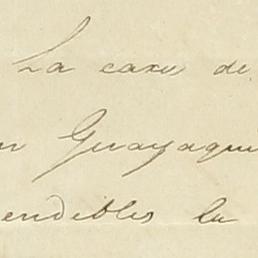 La casa de
en Guayaqui
endibles la